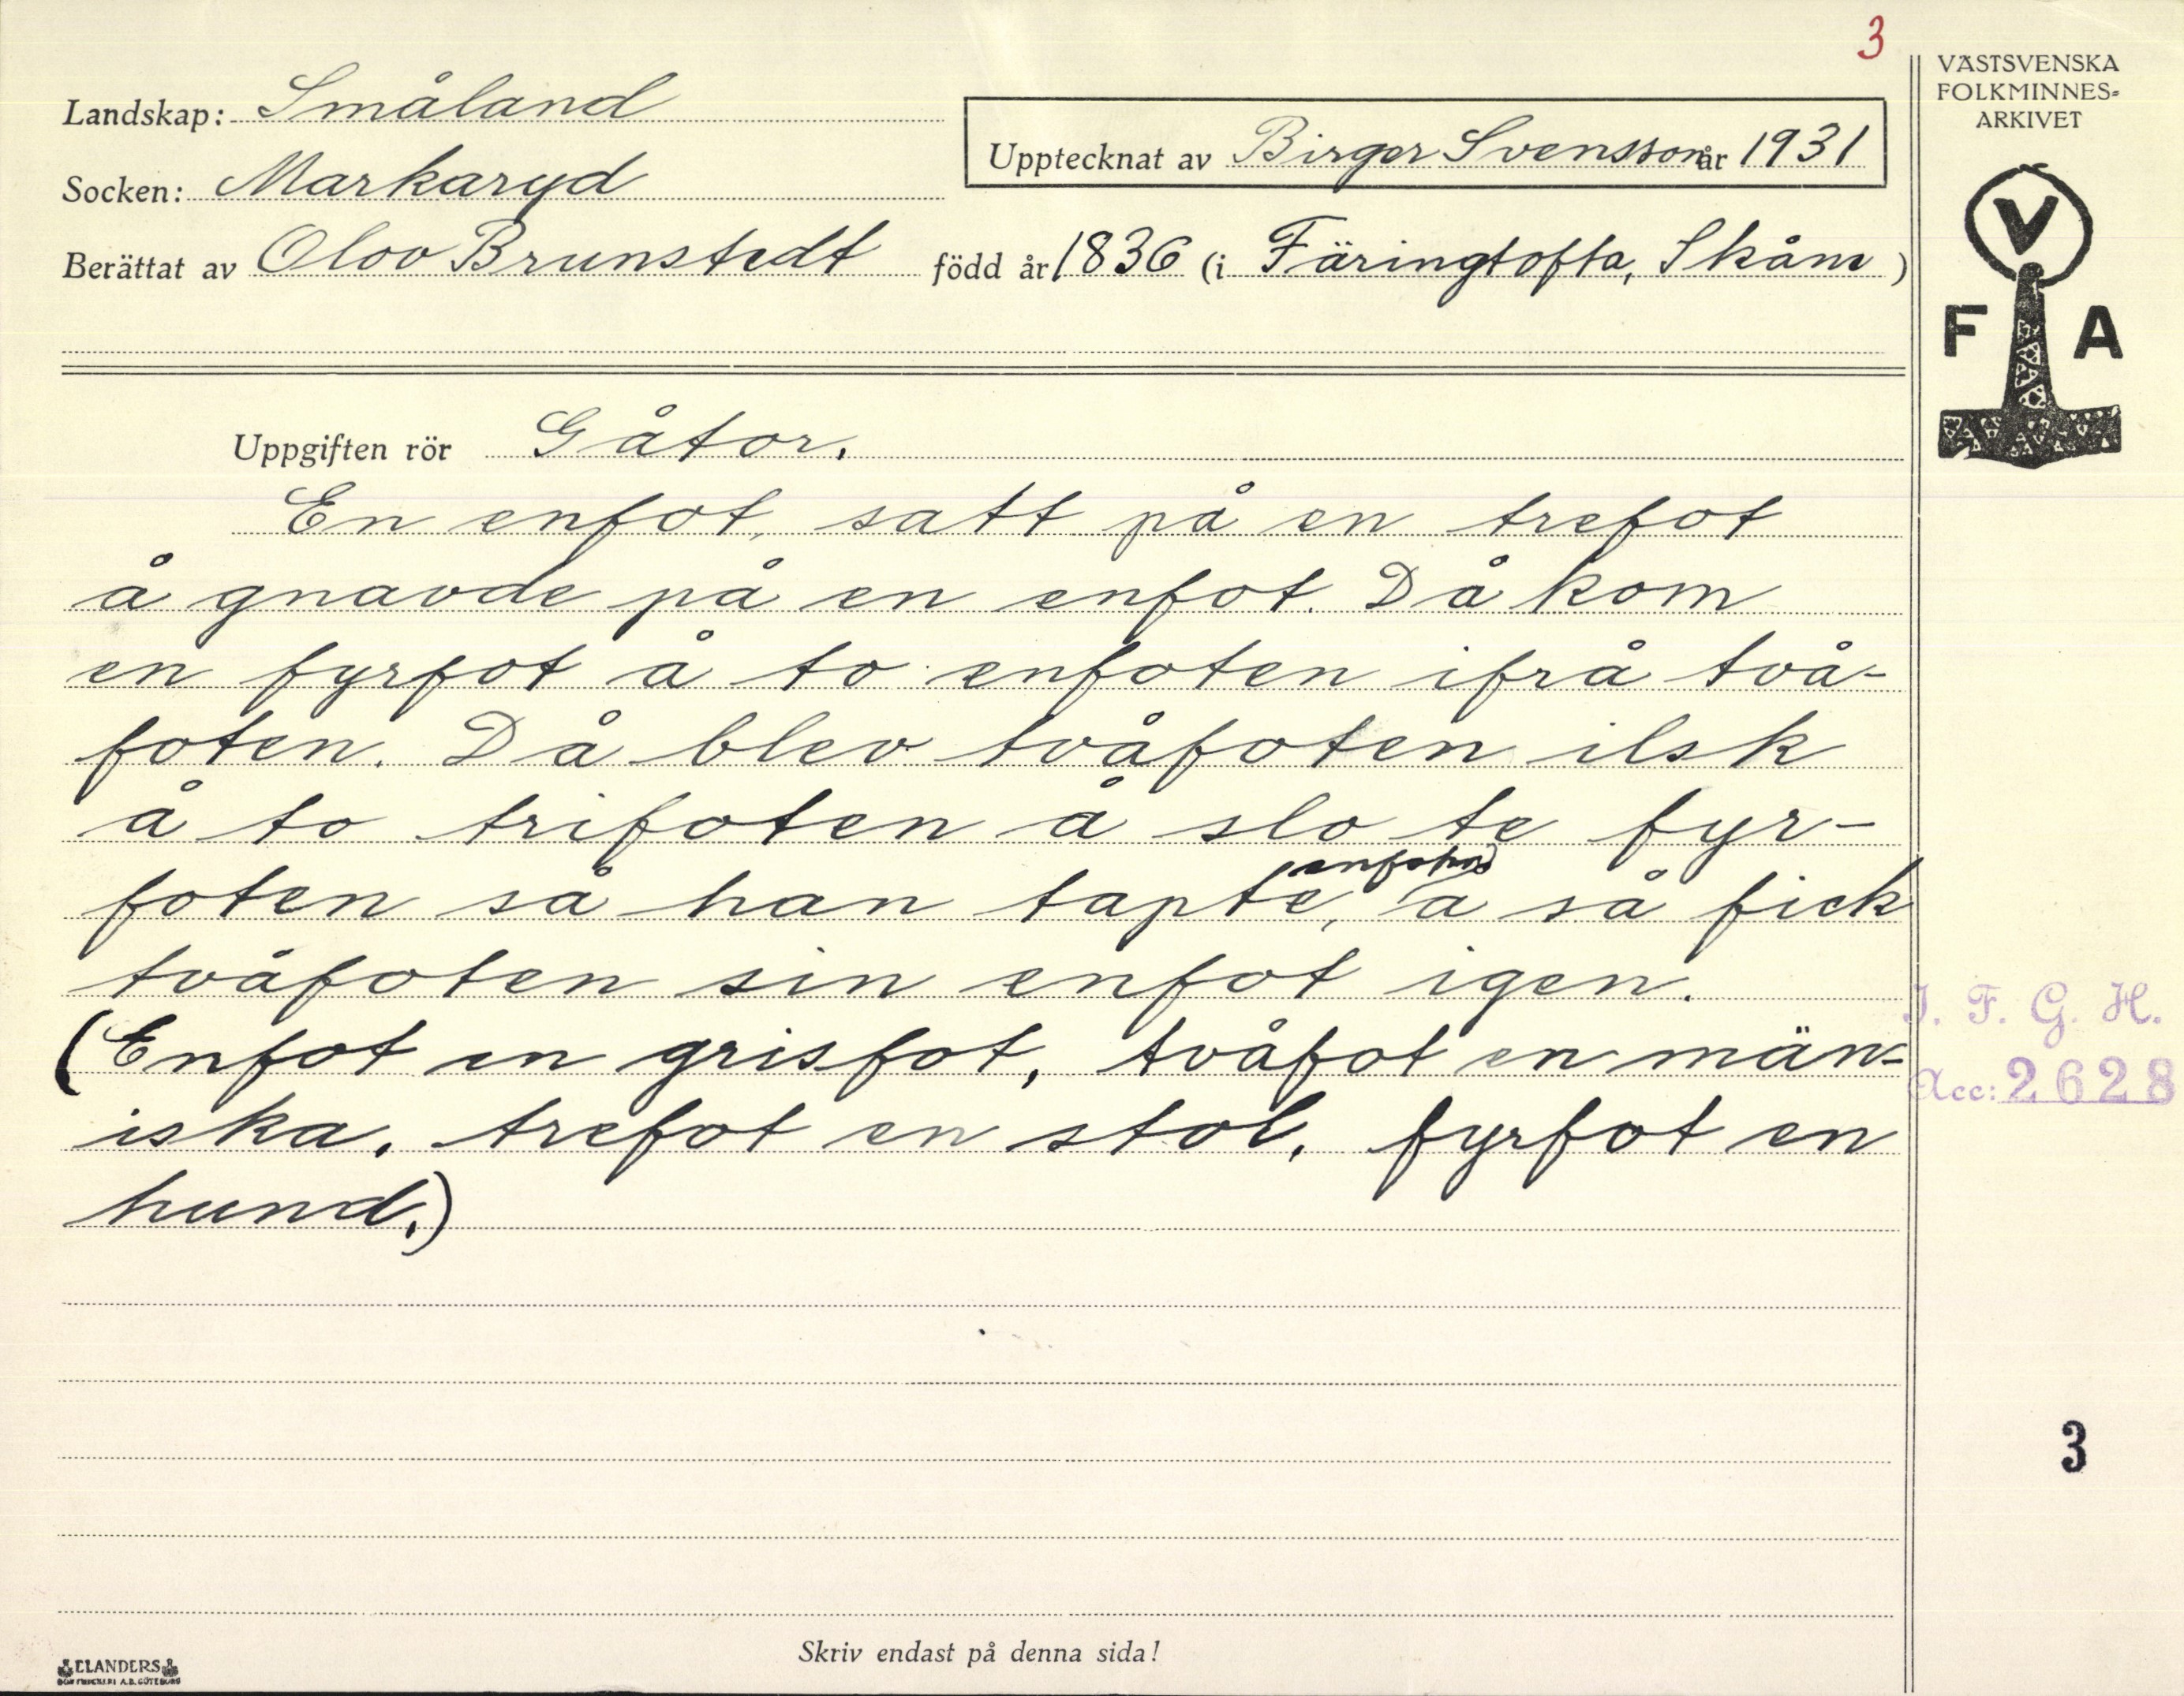 3
VÄSTSVENSKA
FOLKMINNES=
ARKIVET
Landskap: Småland
Upptecknat av Birger Svensson år 1931
Socken: Markaryd
Berättat av Olov Brunstedt född år 1836 (i Färingtofta, Skåne)
V
F A
Uppgiften rör Gåtor.
En enfot, satt på en trefot
å gnavde på en enfot. Då kom
en fyrfot å to enfoten ifrå två-
foten. Då blev tvåfoten ilsk
å to trifoten å slo te fyr-
enfoten
foten så han tapte, å så fick
tvåfoten sin enfot igen.
(Enfot en grisfot, tvåfot en män-
iska, trefot en stol, fyrfot en
hund.)
I. F. G. H.
Acc: 2628
3
Skriv endast på denna sida!
ELANDERS
BOKTRYCKERI A.B. GÖTEBORG